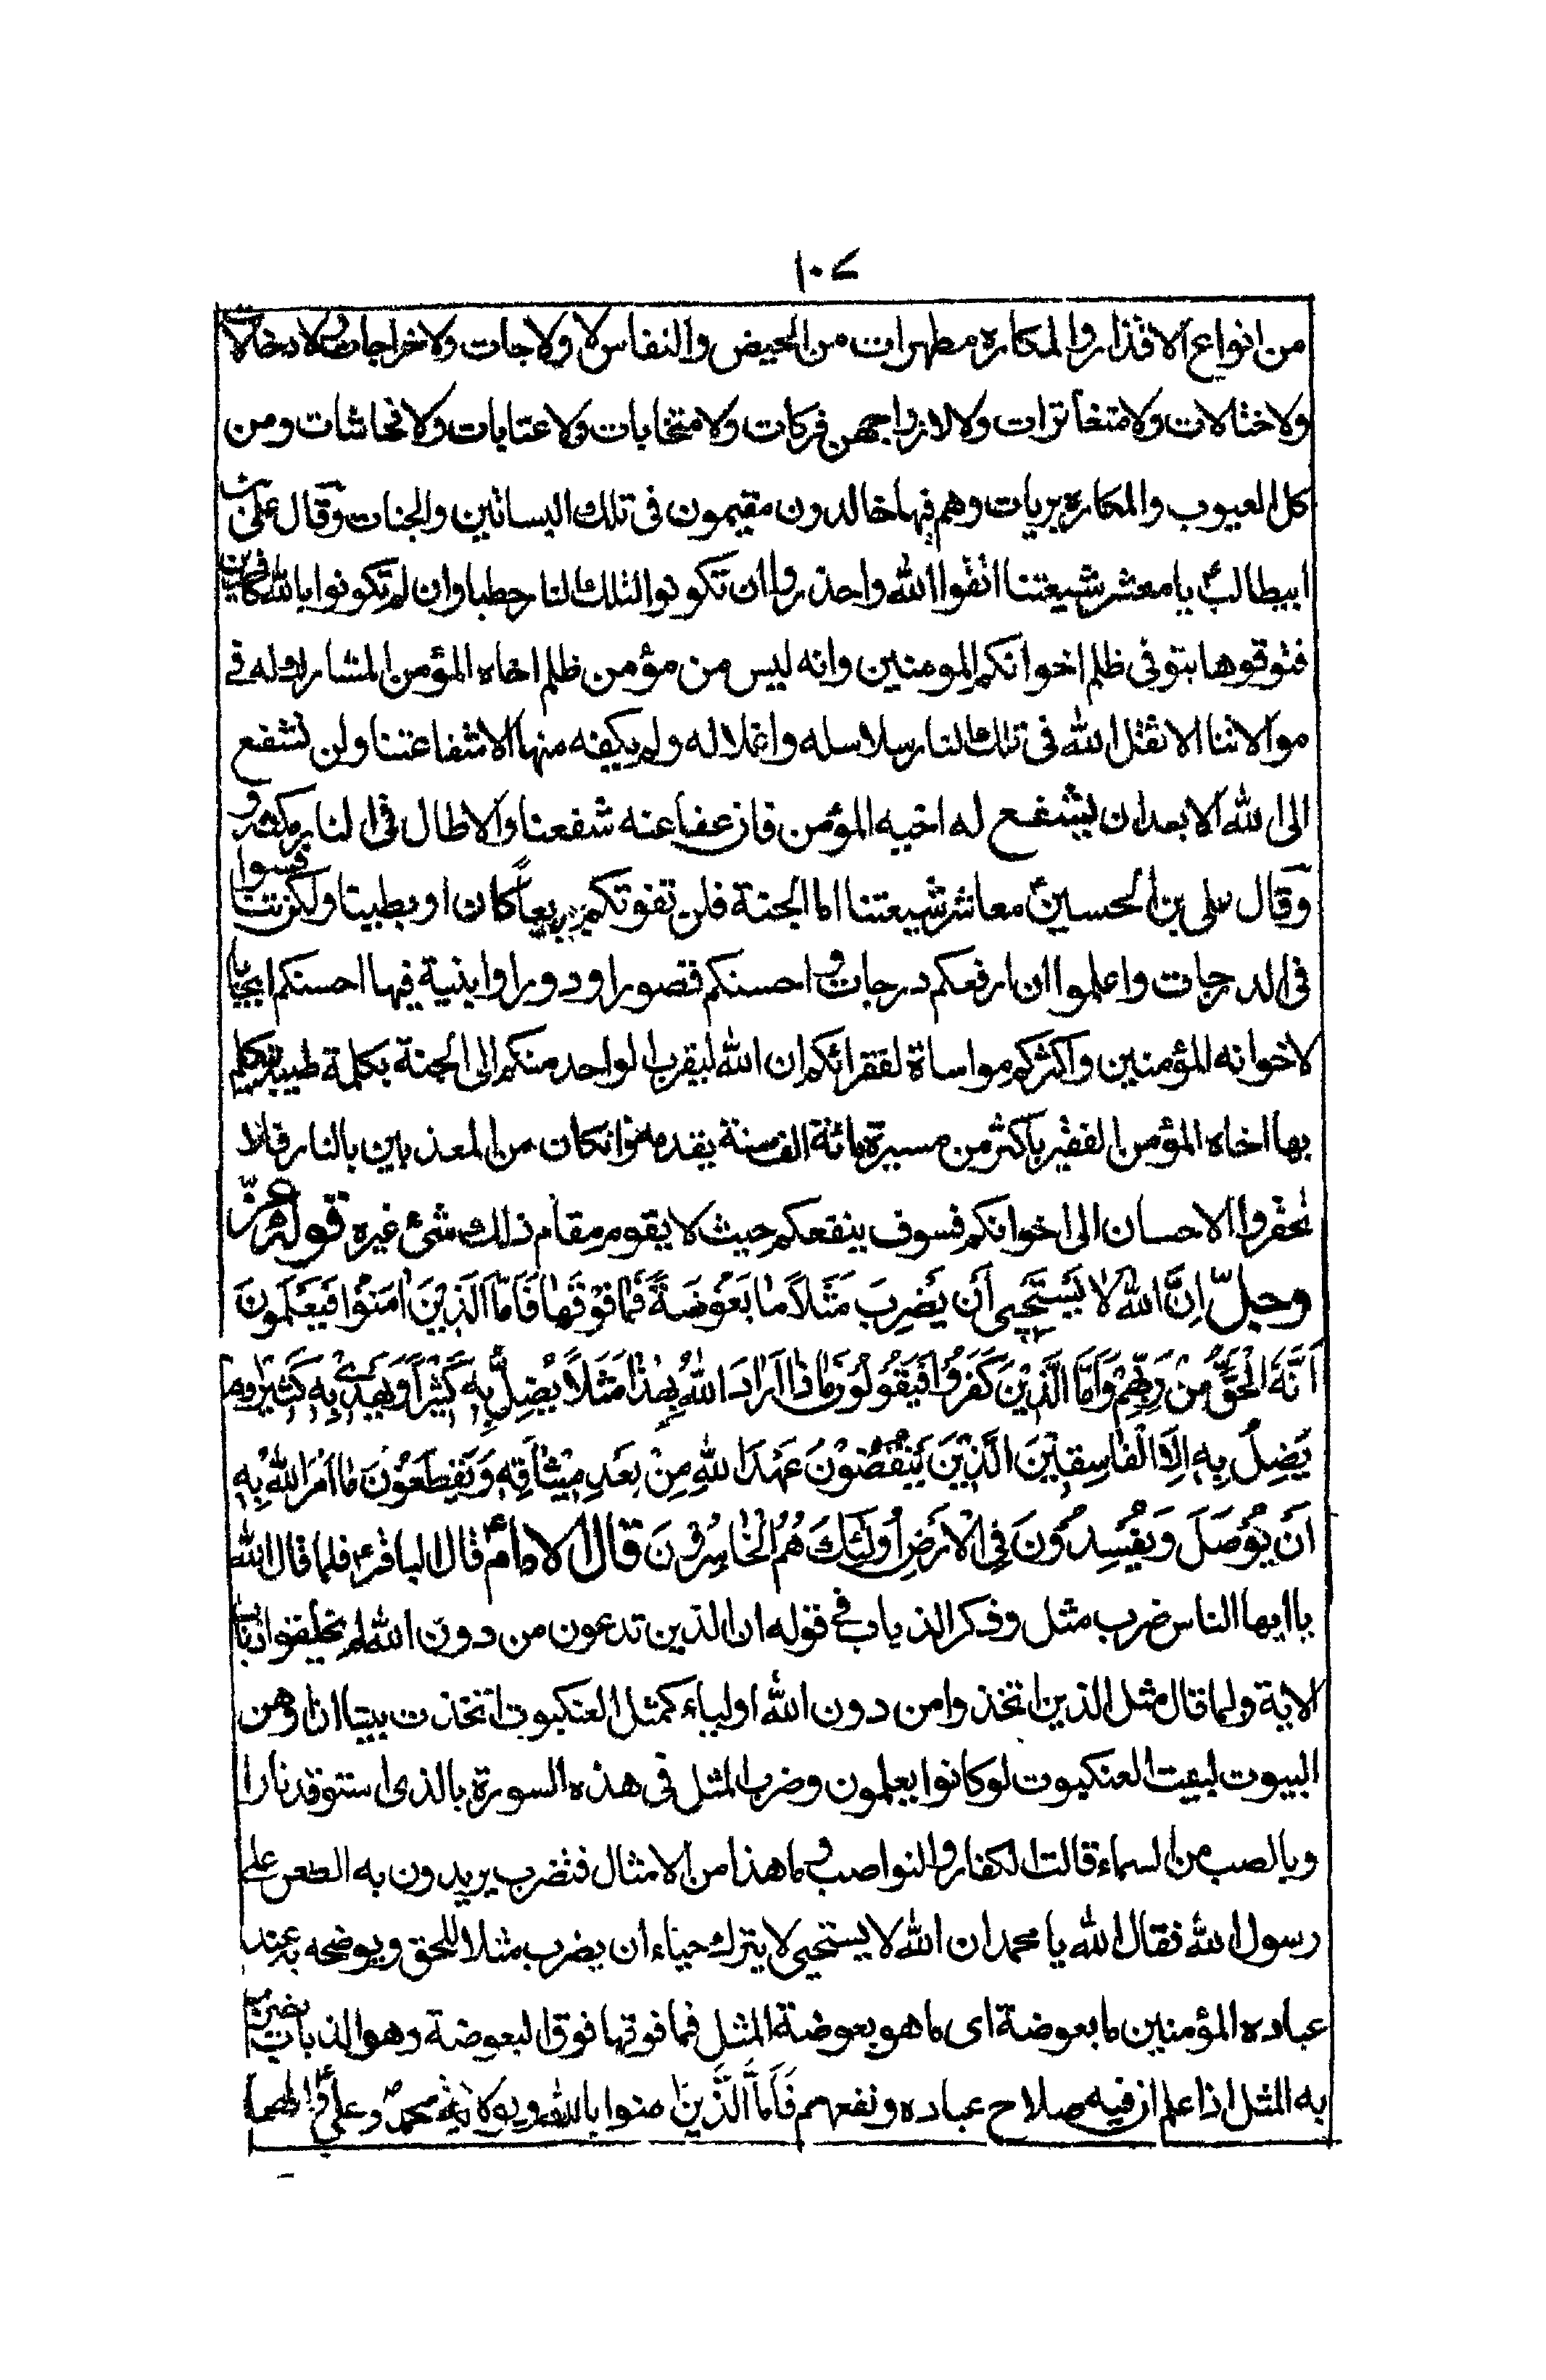 ١٠٤
من انواع الاقذار والمكاره مطهرات من الحيض والنفاس لا ولاجات ولا خراجات ولا دخالات
ولا ختالات ولا متغايرات ولا لازواجهن فركات ولا متخابات ولا عتابات ولا فحاشات ومن
كل العيوب والمكاره بريات وهم فيها خالدون مقيمون فى تلك البساتين والجنات وقال على بن
ابيطالب ع يا معشر شيعتنا اتقوا الله واحذروا ان تكونوا لتلك النار حطبا وان لم تكونوا بالله كافرين
فتوقوها بتوقى ظلم اخوانكم المومنين وانه ليس من مؤمن ظلم اخاه المؤمن المشارك له فى
موالاتنا الا ثقل الله فى تلك النار سلاسله واغلاله ولم يكفه منها الا شفاعتنا ولن نشفع
الى الله الا بعد ان يشفع له اخيه المؤمن فان عفا عنه شفعنا والا طال فى النار مكثه و
وقال على بن الحسين ع معاشر شيعتنا اما الجنة فلن تفوتكم سريعاً كان او بطيئا ولكن تنافسوا
فى الدرجات واعلموا ان ارفعكم درجات و احسنكم قصورا ودورا وابنية فيها احسنكم ايجابا
لاخوانه المؤمنين واكثركم مواساة لفقرائكم ان الله ليقرب الواحد منكم الى الجنة بكلمة طيبة يكلم
بها اخاه المؤمن الفقير باكثر من مسيرة مائة الف سنة يقدمه وان كان من المعذبين بالنار فلا
تحقروا الاحسان الى اخوانكم فسوف ينفعكم حيث لا يقوم مقام ذلك شئ غيره قوله عز
وجلّ اِنَّ اللهَ لا يَسْتَحْيى أَن يَضْرِبَ مَثَلاً ما بَعُوضَةً فَما فَوْقَها فَأَمَّا الَّذِيْنَ امَنُوْا فَيَعْلَمُونَ
اَنَّهُ الْحَقُّ مِنْ رَبِّهِمْ وَاَمَّا الَّذِيْنَ كَفَرُوْا فَيَقُولُونَ ماذا اَرادَ اللهُ بِهذا مَثَلاً يُضِلُّ بِهِ كَثِيْراً وَيَهْدِىْ بِهِ كَثِيْرا وما
يُضِلُّ بِهِ اِلاَّ الْفاسِقِيْنَ الَّذِيْنَ يَنْقُضُوْنَ عَهْدَ اللهِ مِنْ بَعْدِ مِيْثاقِهِ وَيَقْطَعُوْنَ ما اَمَرَ اللهُ بِهِ
اَنْ يُوْصَلَ وَيُفْسِدُوْنَ فِى الْاَرْضِ اُولئِكَ هُمُ الْخاسِرُوْنَ قال الامام ع قال الباقر ع فلما قال الله
يا ايها الناس ضرب مثل وذكر الذباب فى قوله ان الذين تدعون من دون الله لم يخلقوا ذبابا
الاية ولما قال مثل الذين اتخذوا من دون الله اولياء كمثل العنكبوت اتخذت بيتا ان اوهن
البيوت لبيت العنكبوت لو كانوا يعلمون وضرب المثل فى هذه السورة بالذى استوقد نارا
وبالصيب من السماء قالت الكفار والنواصب و ما هذا من الامثال فتضرب يريدون به الطعن على
رسول الله فقال الله يا محمد ان الله لا يستحيى لا يترك حياء ان يضرب مثلا للحق ويوضحه به عند
عباده المؤمنين ما بعوضة اى ما هو بعوضة المثل فما فوقها فوق البعوضة وهو الذباب يضرب
به المثل اذا علم ان فيه صلاح عباده ونفعهم فَاَمَّا الَّذِيْنَ امنوا بالله وبولاية محمد ص وعلى ع والهما